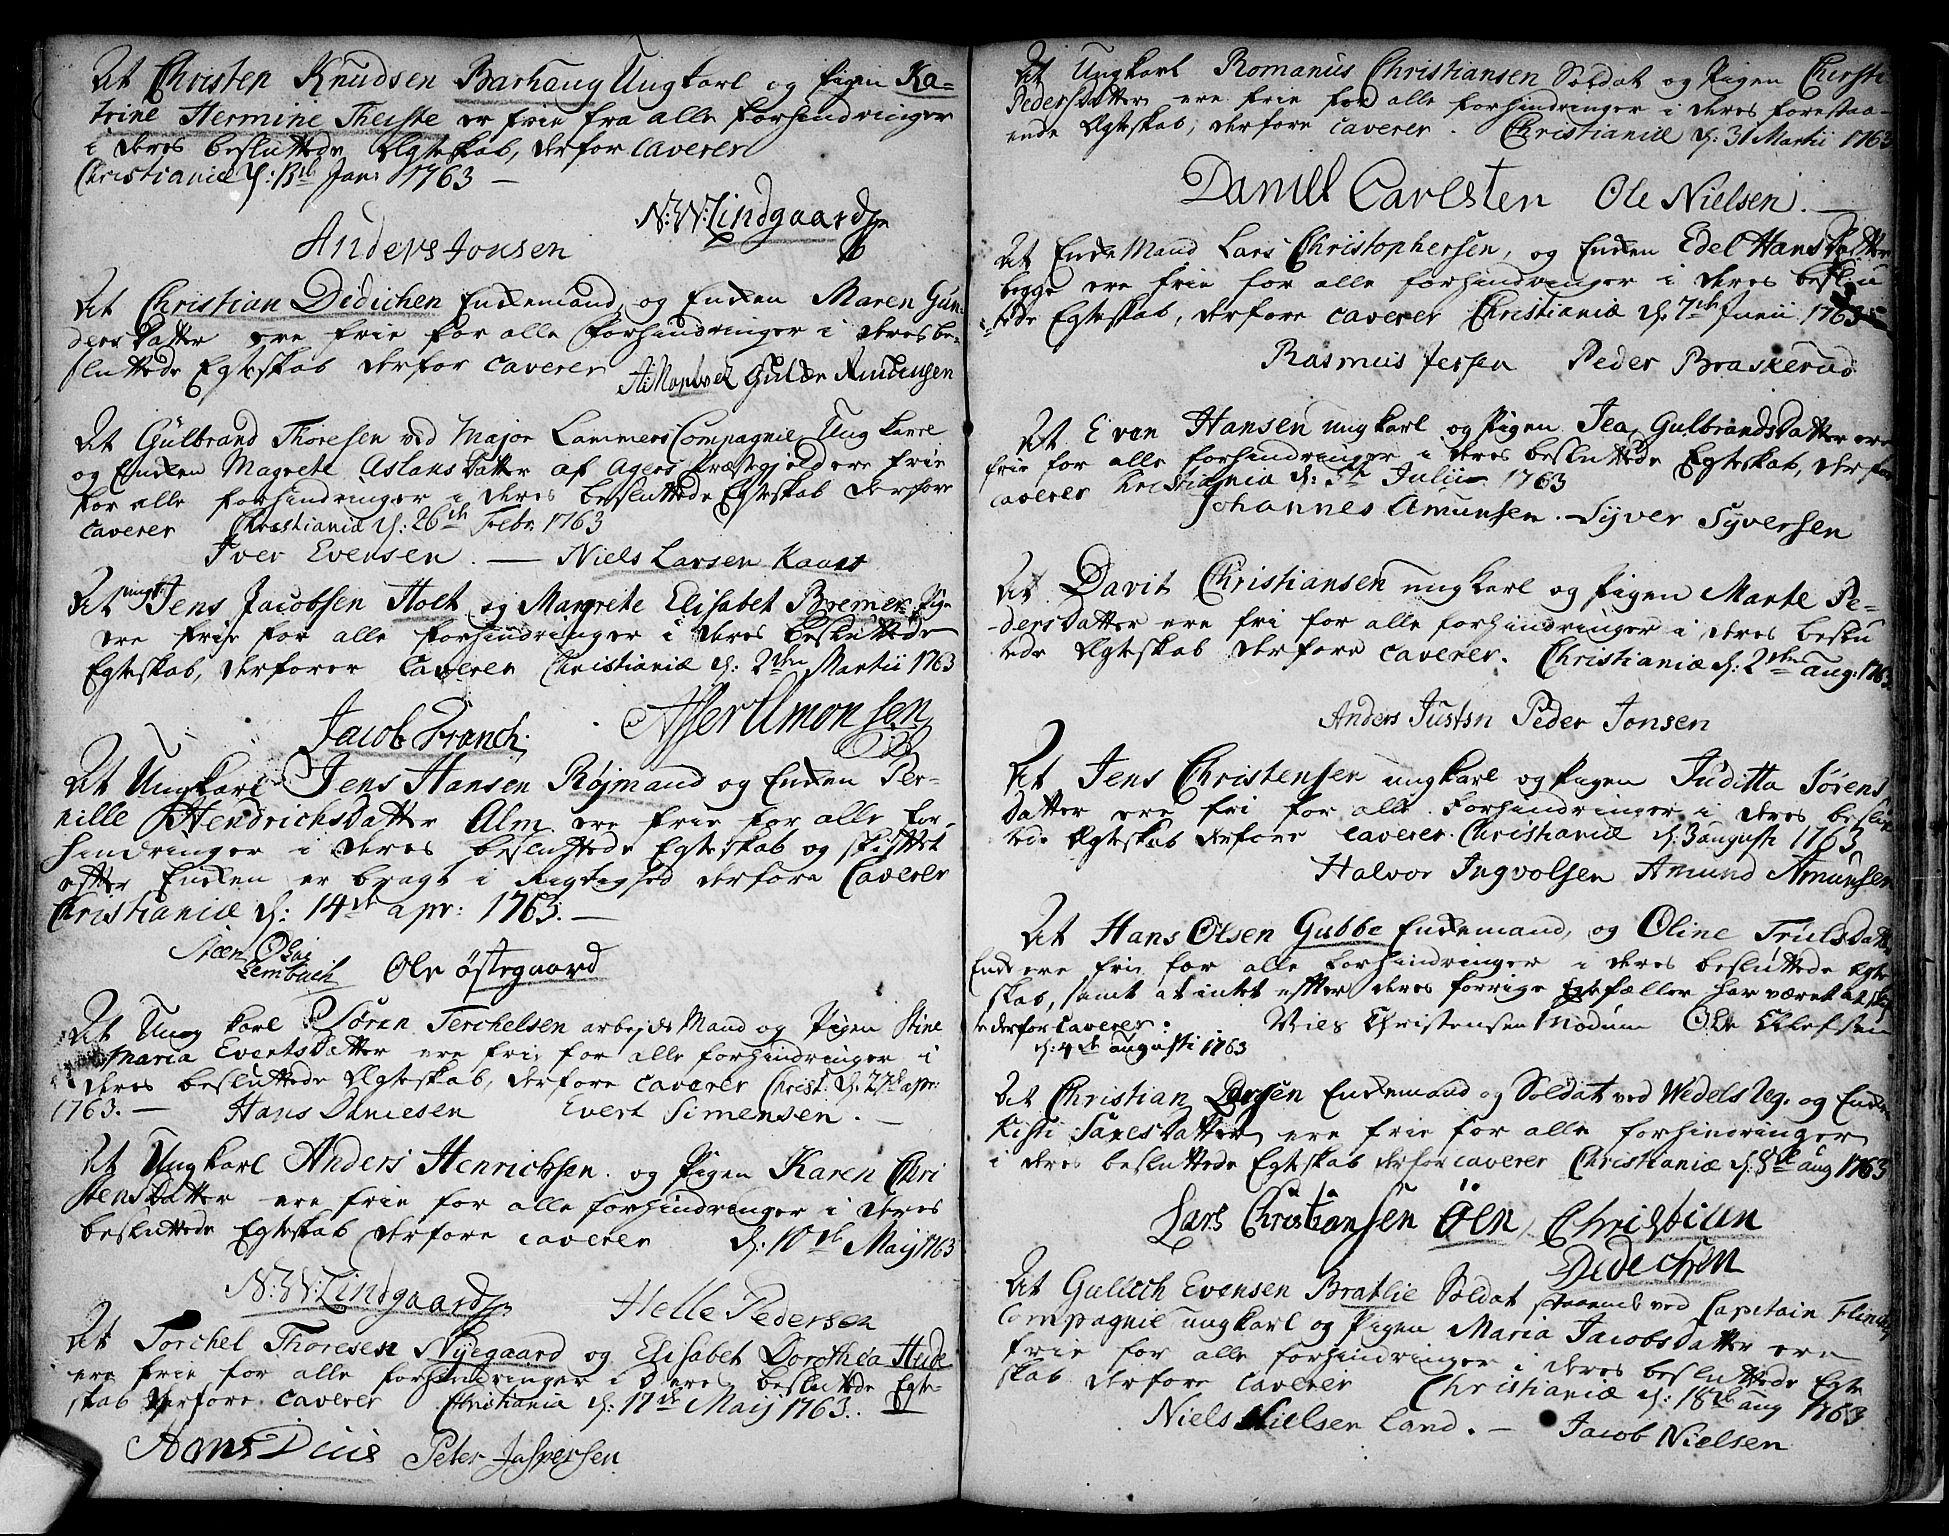 At Christen Knudsen Barhaug Ungkarl og Pigen Ka-
trine Hermine Theiste er frie fra alle forhindringer
i deres besluttede Egteskab, derfor caverer
Christianiæ d: 13de Jan: 1763 —
N: W: Lindgaard
Anders Jonsen
At Christian Dedichen Enkemand, og Enken Maren Gun-
dersdatter ere frie for alle forhindringer i deres be-
sluttede Egteskab derfor caverer
Gulbr Amundsen
At Gulbrand Thoresen ved Major Lammers Compagnie Ung karl
og Enken Magrete Aslansdatter af Agers Præstegield ere frie
for alle forhindringer i deres besluttede Egteskab derfore
caverer Christianiæ d: 26de Febr 1763
Iver Evensen. — Niels Larsen Kaas
At ungk: Jens Jacobsen Holt og Margrete Elisabet Bremer Pige
ere frie for alle forhindringer i deres besluttede
Egteskab, derforer caverer Christianiæ d: 2den Martii 1763
Jacob Franch. Asser Amonsen
At Ungkarl Jens Hansen Røjmand og Enken Per-
nille Hendrichsdatter Alm ere frie for alle for-
hindringer i deres besluttede Egteskab og skiftet
efter Enken er bragt i Rigtighed derfore Caverer
Christianiæ d: 14de apr: 1763. —
Lembach Ole Østegaard
At Ung karl Søren Terchelsen arbejds Mand og Pigen Stine
Maria Evertsdatter ere frie for alle forhindringer i
deres besluttede Egteskab, derfore caverer Christ: d: 27de apr:
1763. — Hans Danielsen Evert Simensen. —
At Ungkarl Anders Henrichsen og Pigen Karen Chri
stensdatter ere frie for alle forhindringer i deres
besluttede Egteskab derfore caverer d: 10de Maij 1763
N: W: Lindgaard Helle Pedersen
At Torchel Thoresen Nyegaard og Elisabet Dorothea Hude
ere frie for alle forhindringer i deres besluttede Egte-
skab derfore caverer Christiania d: 17de Maij 1763.
Hans Diuis Peter Jaspersen
At Ungkarl Romanus Christiansen Soldat og Pigen Chersti
Pedersdatter ere frie for alle forhindringer i deres forestaa-
ende Egteskab, derfore caverer. Christianiæ d: 31 Martii 1763
Daniel Carlsten Ole Nielsen. —
At Enke Mand Lars Christophersen, og Enken Edel Hansdatter
begge ere frie for alle forhindringer i deres beslu
tede Egteskab, derfore caverer Christianiæ d: 7de Junii 1763
Rasmus Jensen Peder Braskerud
At Even Hansen ungkarl og Pigen Jea Gulbrandsdatter ere
frie for alle forhindringer i deres besluttede Egteskab, derfor
caverer Christiania d: 5te Julii 1763
Johannes Amunsen. — Syver Syversen
At Davit Christiansen ungkarl og Pigen Marte Pe-
dersdatter ere fri for alle forhindringer i deres beslu
tede Egteskab derfore caverer. Christianiæ d: 2den aug: 1763
Anders Justsn Peder Jonsen
At Jens Christensen ungkarl og Pigen Juditta Sørens
datter ere fri for alle forhindringer i deres beslut
tede Egteskab derfore caverer. Christianiæ d: 3 augusti 1763
Halvor Ingvolsen Amund Amunsen
At Hans Olsen Gubbe Enkemand, og Oline Trulsdatt
Enke ere frie for alle forhindringer i deres besluttede Egte
skab, samt at intet efter deres forrige Egtefæller har været at skif
te derfor caverer. Niels Christensen Modum Ole Olefsen
d: 4de augusti 1763
At Christian Larsen Enkemand og Soldat ved Wedels Reg. og Enke
Kisti Saxesdatter ere frie for alle forhindringer
i deres besluttede Egteskab derfor caverer Christianiæ d: 8de aug 1763
Lars Christiansen Öen, Christian
Dedechen
At Gullich Evensen Bratlie Soldat staaende ved Capitain Flindt
Compagnie ungkarl og Pigen Maria Jacobsdatter ere
frie for alle forhindringer i deres besluttede Egte
skab derfore caverer Christianiæ d: 18de aug 1763
Niels Nielsen Land. — Jacob Nielsen